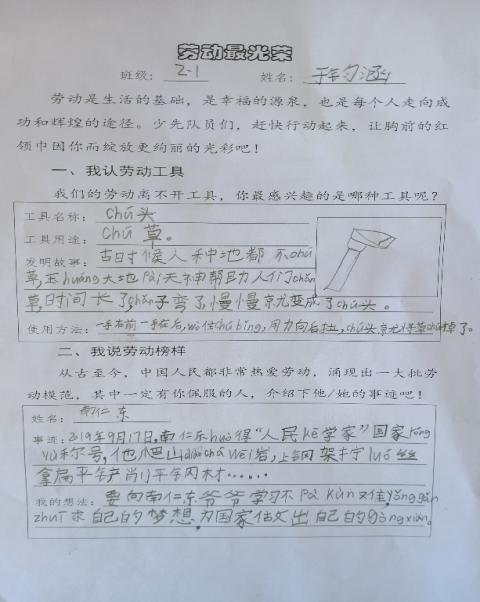 劳动最光荣
班级：2-1 姓名：
劳动是生活的基础，是幸福的源泉，也是每个人走向成
功和辉煌的途径。少先队员们，赶快行动起来，让胸前的红
领巾因你而绽放更绚丽的光彩吧！
一、我认劳动工具
我们的劳动离不开工具，你最感兴趣的是哪种工具呢？
工具名称：chú头
工具用途：chú草。
发明故事：古时候人种地都不chú
草，玉huáng大地pài天神帮助人们chǎn
草，时间长了chǎn子弯了，慢慢就变成了chú头。
使用方法：一手在前一手在后，wò住chú bǐng，用力向后拉，chú头就将草chú掉了。
二、我说劳动榜样
从古至今，中国人民都非常热爱劳动，涌现出一大批劳
动模范，其中一定有你佩服的人，介绍下他/她的事迹吧！
姓名：南仁东
事迹：2019年9月17日，南仁东huò得“人民kē学家”国家róng
yù称号，他爬山wēi岩，上钢架拧luó丝
拿扁平铲削平钢材……
我的想法：要向南仁东爷爷学习不pà kùn难，yǒng gǎn
zhuī求自己的梦想，为国家做出自己的gòng xiàn。